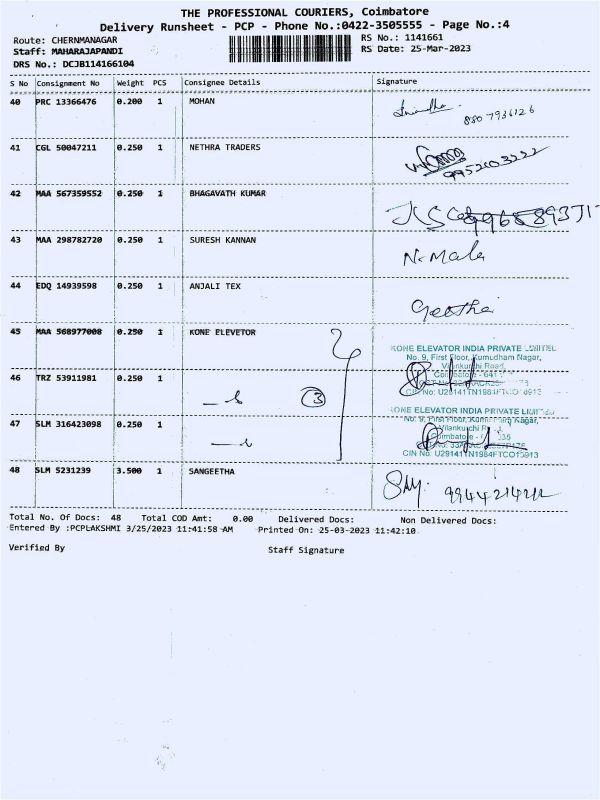 THE PROFESSIONAL COURIERS, Coimbatore
Delivery Runsheet - PCP - Phone No.:0422-3505555 - Page No.:4
Route: CHERNMANAGAR
RS No.: 1141661
Staff: MAHARAJAPANDI
RS Date: 25-Mar-2023
DRS No.: DCJB114166104
S No Consignment No Weight PCS Consignee Details Signature
40 PRC 13366476 0.200 1 MOHAN
41 CGL 50047211 0.250 1 NETHRA TRADERS
9952603222
42 MAA 567359552 0.250 1 BHAGAVATH KUMAR
43 MAA 298782720 0.250 1 SURESH KANNAN
N. Mala
44 EDQ 14939598 0.250 1 ANJALI TEX
Geetha
45 MAA 568977008 0.250 1 KONE ELEVETOR
KONE ELEVATOR INDIA PRIVATE LIMITED
No. 9, First Floor, Kumudham Nagar,
Vilankurichi Road
46 TRZ 53911981 0.250 1
3
Coimbatore - 641
CIN No: U29141TN1984FTCO15913
KONE ELEVATOR INDIA PRIVATE
47 SLM 316423098 0.250 1
No. 9, First Floor, Nagar,
Vilankurichi
Coimbatore - 035
CIN No: U29141TN1984FTCO15913
48 SLM 5231239 3.500 1 SANGEETHA
Total No. Of Docs: 48 Total COD Amt: 0.00 Delivered Docs: Non Delivered Docs:
Entered By :PCPLAKSHMI 3/25/2023 11:41:58 AM Printed On: 25-03-2023 11:42:10
Verified By Staff Signature